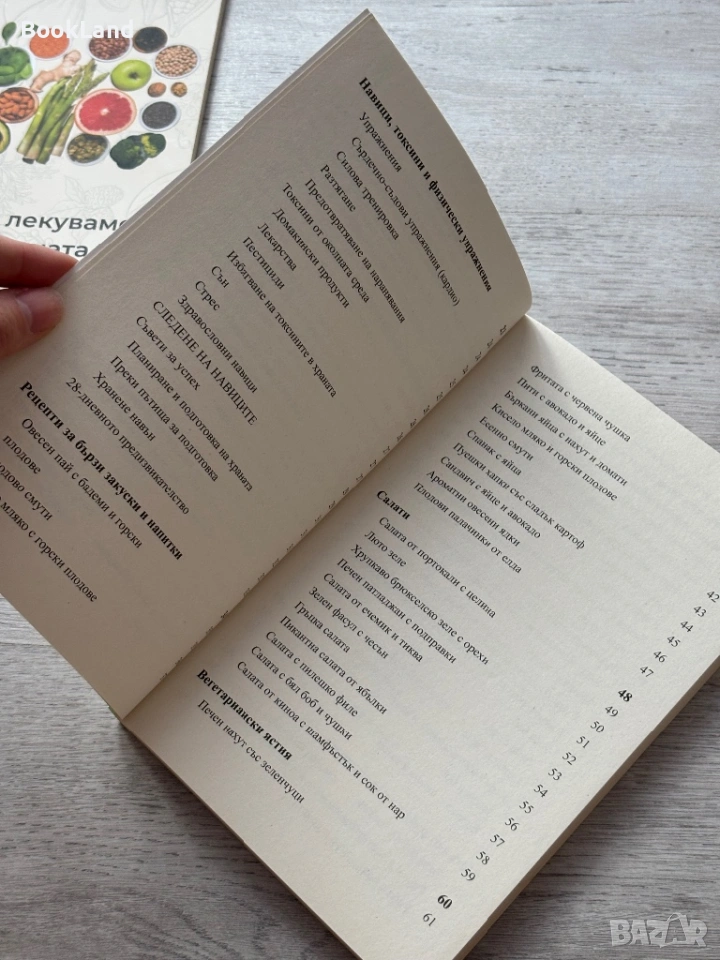 BookLand
лекуваме
ата
Навици, токсини и физически упражнения
Упражнения
Сърдечно-съдови упражнения (кардио)
Силова тренировка
Разтягане
Предотвратяване на наранявания
Токсини от околната среда
Домакински продукти
Лекарства
Пестициди
Избягване на токсините в храната
Сън
Стрес
Здравословни навици
СЛЕДЕНЕ НА НАВИЦИТЕ
Съвети за успех
Планиране и подготовка на храната
Преки пътища за подготовка
Хранене навън
28-дневното предизвикателство
Рецепти за бързи закуски и напитки
Овесен пай с бадеми и горски
плодове
одово смути
мляко с горски плодове
Фритата с червена чушка
Пити с авокадо и яйце
Бъркани яйца с нахут и домати
Кисело мляко и горски плодове
Есенно смути 42
Спанак с яйца 43
Пуешки хапки със сладък картоф 44
Сандвич с яйце и авокадо 45
Ароматни овесени ядки 46
Плодови палачинки от елда 47
Салати 48
Салата от портокали с целина 49
Люто зеле 50
Хрупкаво брюкселско зеле с орехи 51
Печен патладжан с подправки 52
Салата от ечемик и тиква 53
Зелен фасул с чесън 54
Гръцка салата 55
Пикантна салата от ябълки 56
Салата с пилешко филе 57
Салата с бял боб и чушки 58
Салата от киноа с шамфъстък и сок от нар 59
Вегетариански ястия 60
Печен нахут със зеленчуци 61
BAZAR